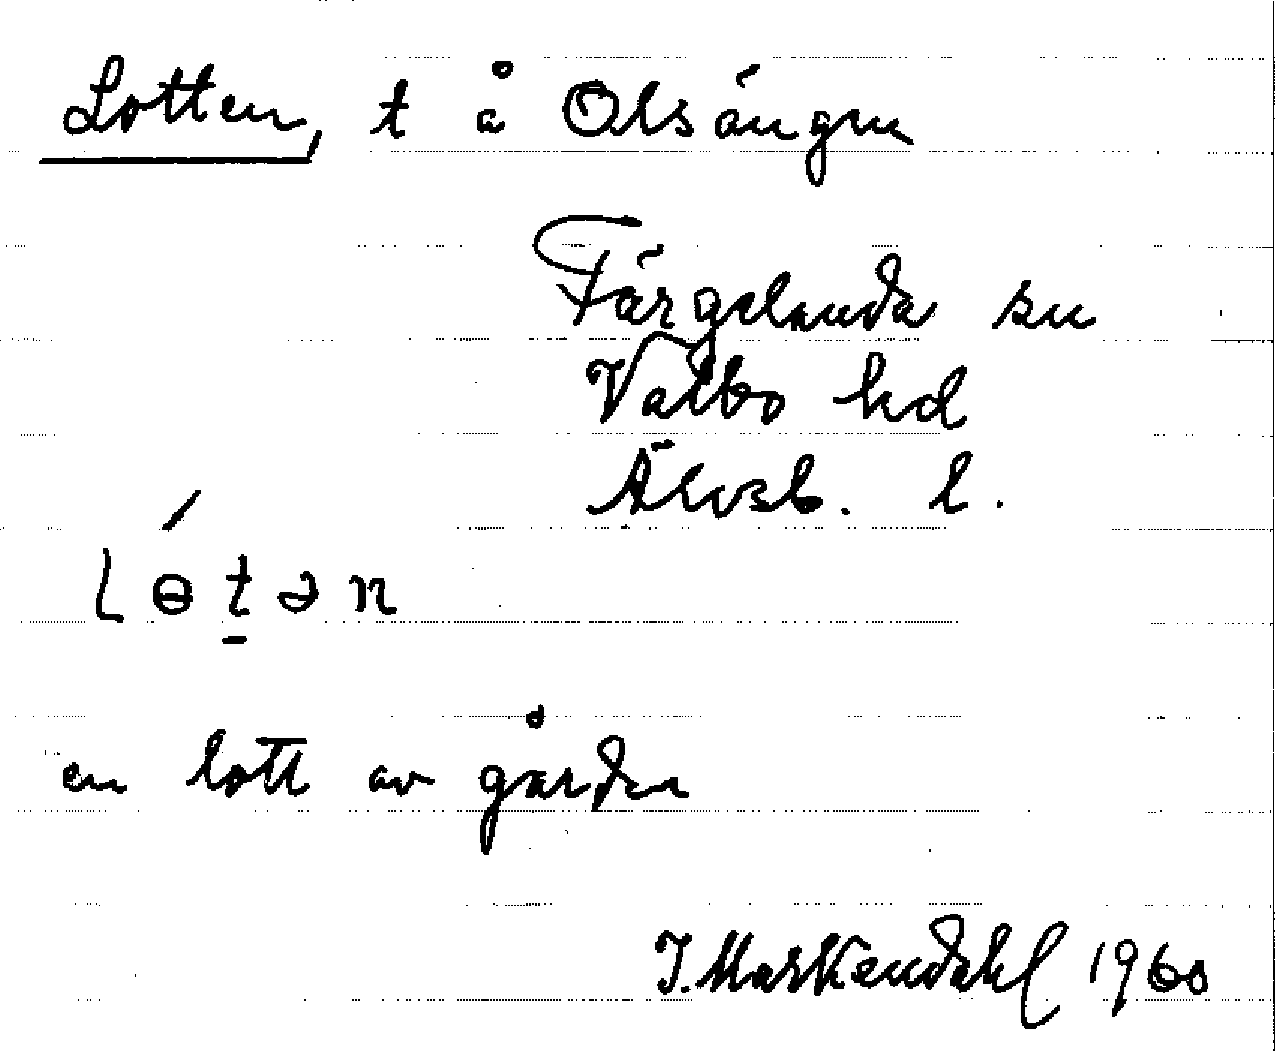 Lotten, t å Olsängen
Färgelanda sn
Valbo hd
Älvsb. l.
lɵ́t̲ən
en lott av gården
I. Markendahl 1960